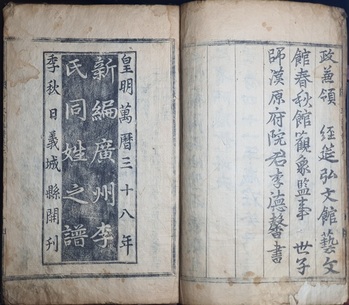 政兼領 經筵弘文館藝文
館春秋館觀象監事 世子
師漢原府院君李德馨書
皇明萬曆三十八年
新編廣州李
氏同姓之譜
季秋日義城縣開刊